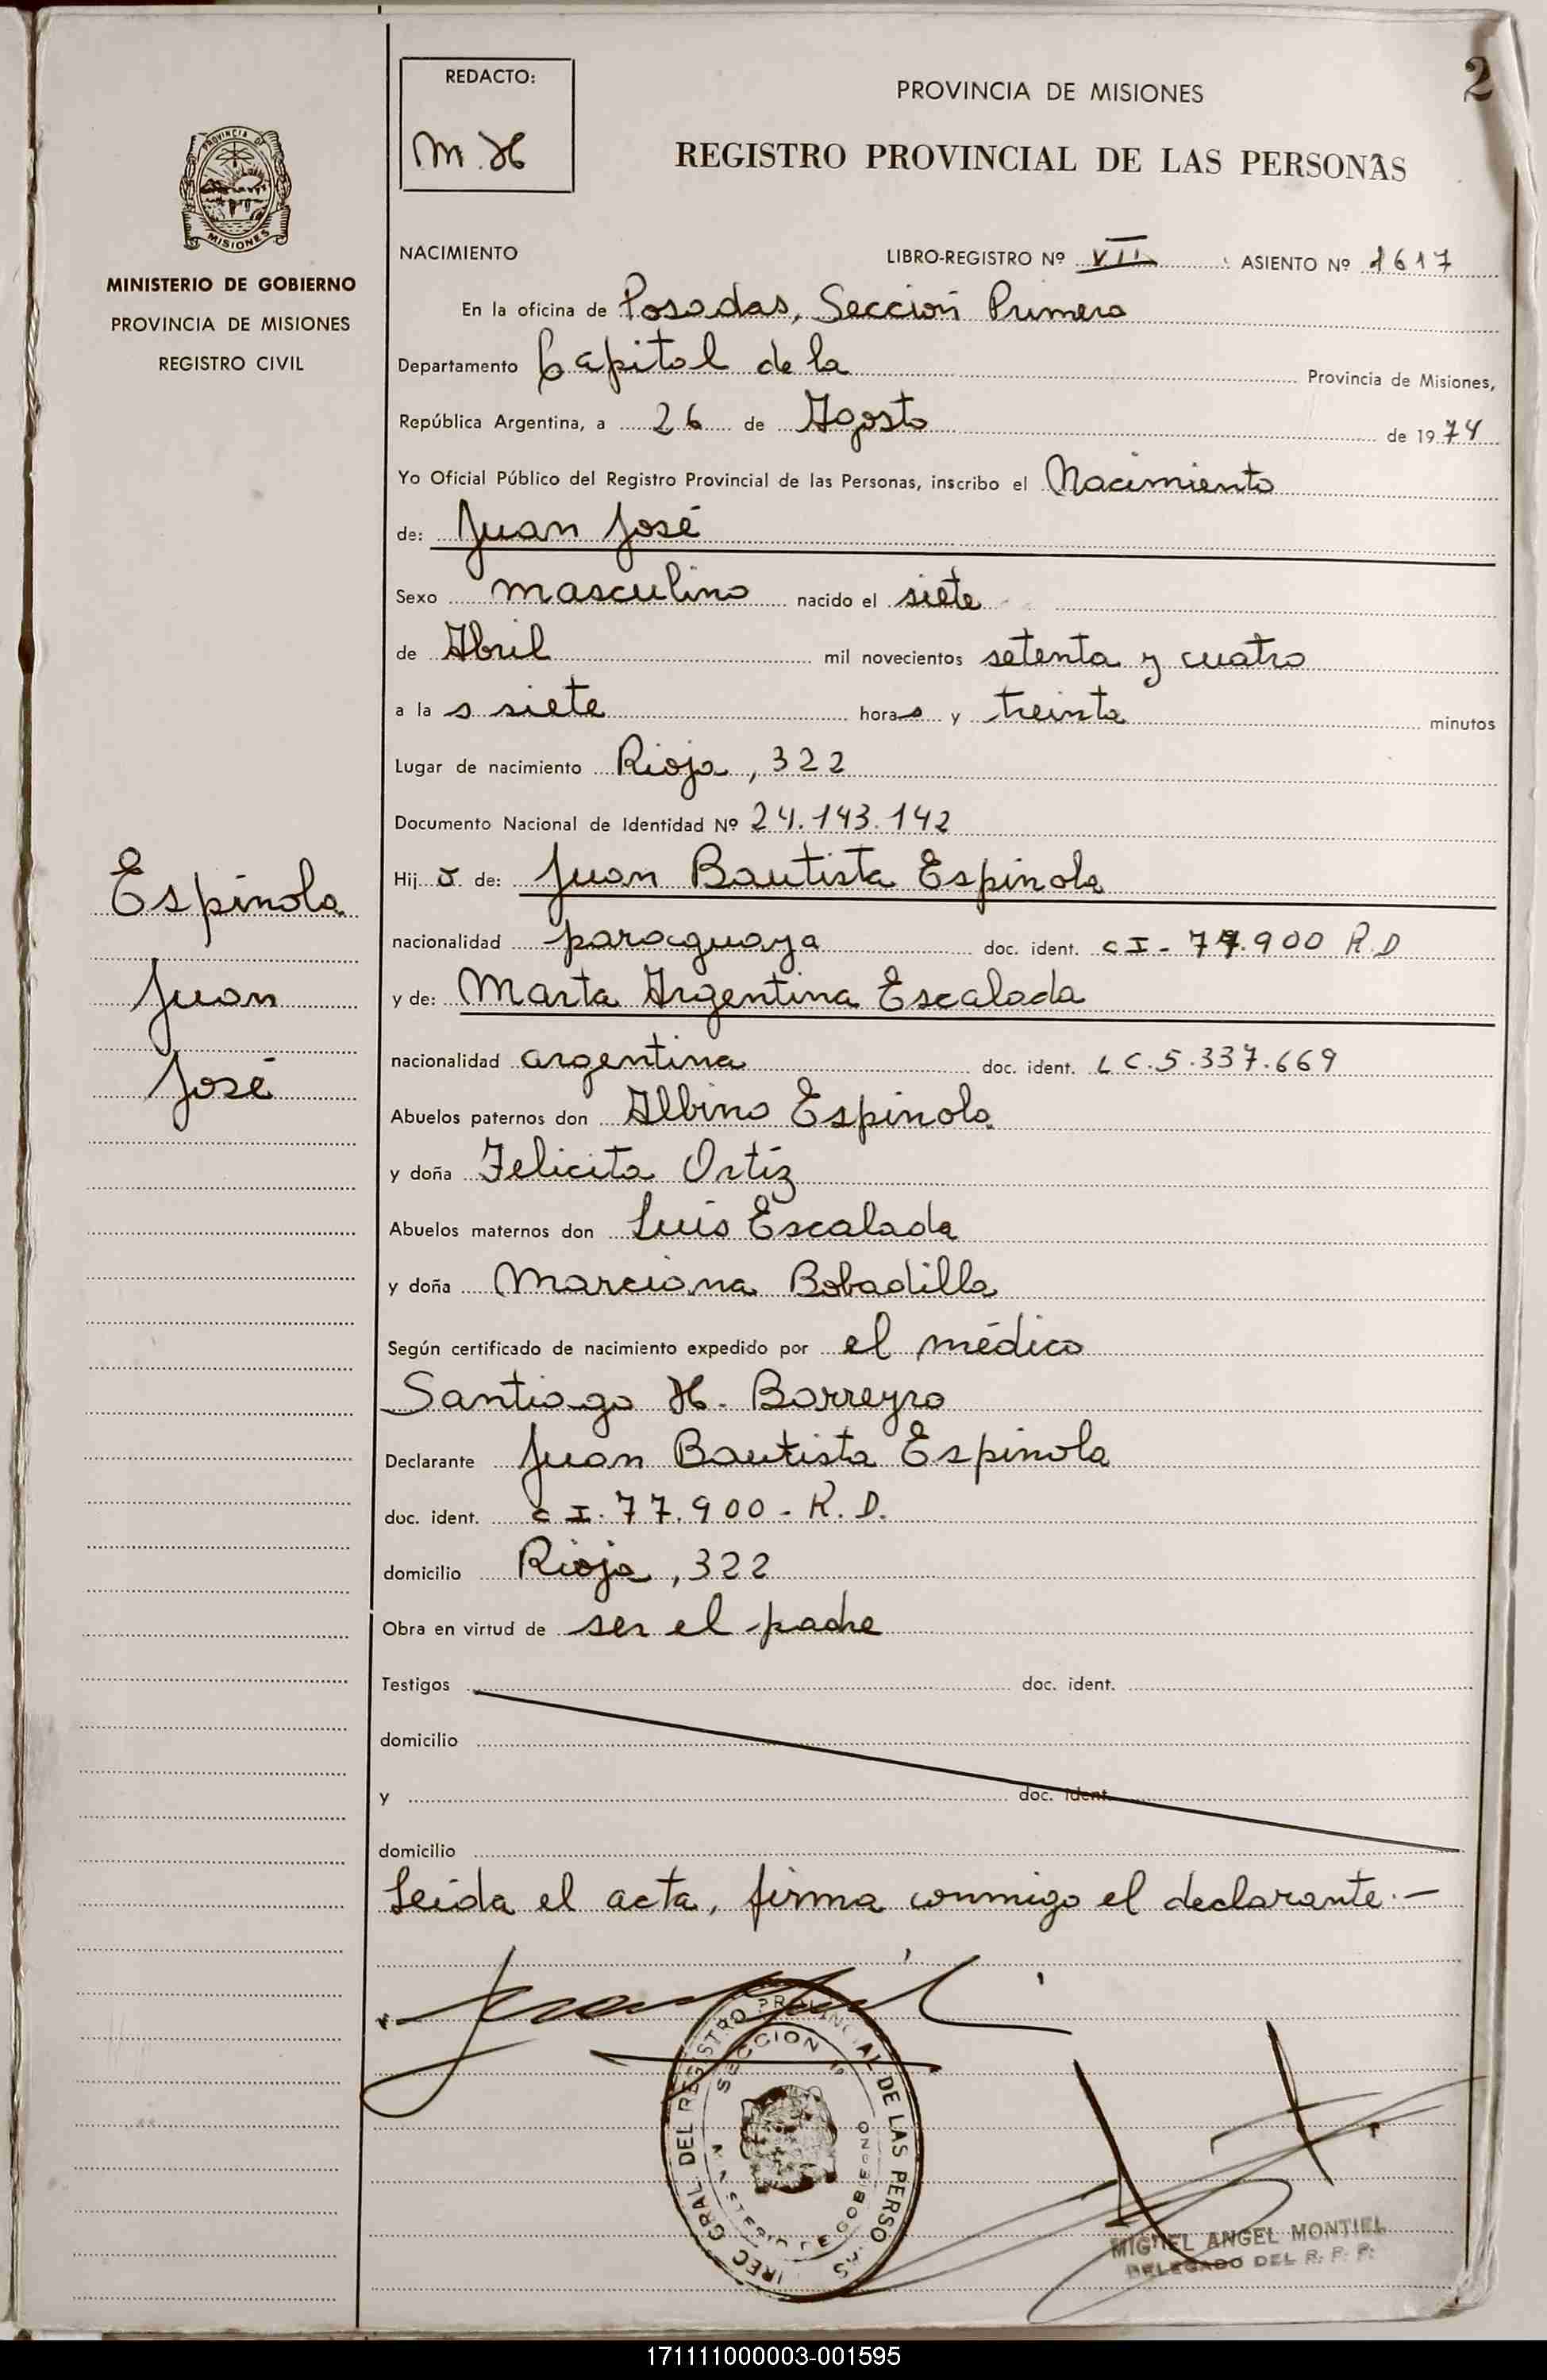 REDACTO:
M. H
PROVINCIA DE MISIONES
2
REGISTRO PROVINCIAL DE LAS PERSONAS
PROVINCIA DE
MISIONES
MINISTERIO DE GOBIERNO
PROVINCIA DE MISIONES
REGISTRO CIVIL
NACIMIENTO LIBRO-REGISTRO Nº VII ASIENTO Nº 1617
En la oficina de Posadas, Sección Primera
Departamento Capital de la Provincia de Misiones,
República Argentina, a 26 de Agosto de 1974
Yo Oficial Público del Registro Provincial de las Personas, inscribo el Nacimiento
de: Juan José
Sexo masculino nacido el siete
de Abril mil novecientos setenta y cuatro
a la s siete horas y treinta minutos
Lugar de nacimiento Rioja, 322
Documento Nacional de Identidad Nº 24.143.142
Hij o de: Juan Bautista Espinola
nacionalidad paraguaya doc. ident. C I - 77.900 R.D
y de: Marta Argentina Escalada
nacionalidad argentina doc. ident. L C. 5.337.669
Abuelos paternos don Albino Espinola
y doña Felicita Ortiz
Abuelos maternos don Luis Escalada
y doña Marciana Bobadilla
Según certificado de nacimiento expedido por el médico
Santiago H. Borreyro
Declarante Juan Bautista Espinola
doc. ident. C I. 77.900 - R. D.
domicilio Rioja, 322
Obra en virtud de ser el padre
Testigos doc. ident.
domicilio
y doc. ident.
domicilio
Leída el acta, firma conmigo el declarante.-
Espinola
Juan
José
DIREC GRAL DEL REGISTRO PROVINCIAL DE LAS PERSONAS
SECCION 1ª
MINISTERIO DE GOBIERNO
MIGUEL ANGEL MONTIEL
DELEGADO DEL R. P. P.
171111000003-001595